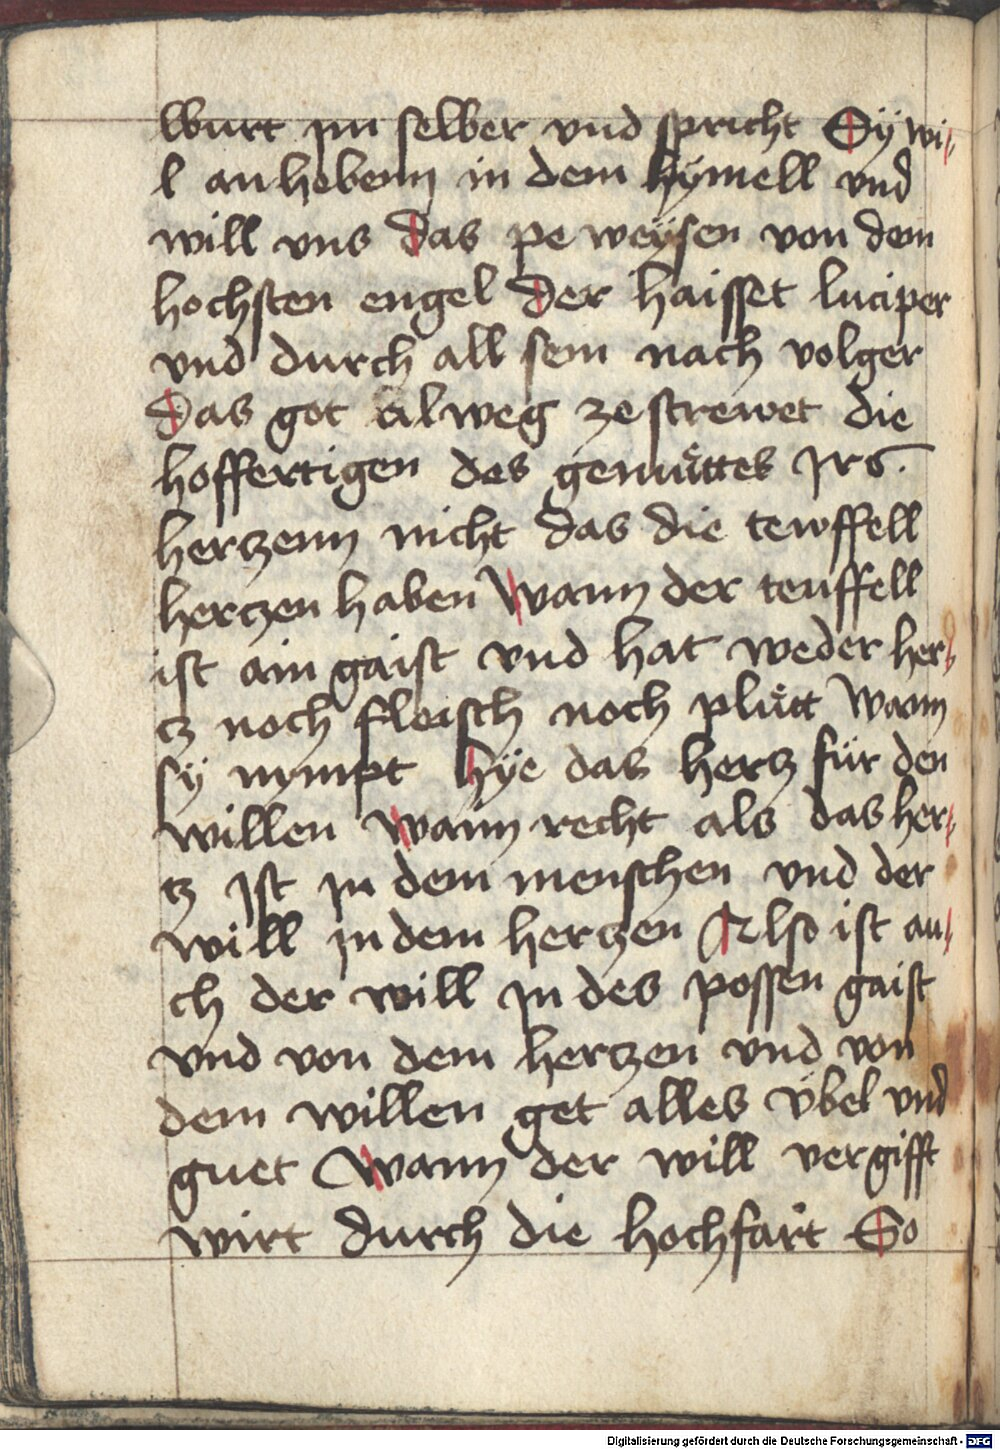 wurt im selber vnd spricht Sÿ wi-
l an hebenn in dem hÿmell vnd
will vns das pe weÿsen von dem
hochsten engel Der haisset luciper
vnd durch all sein nach volger
Das got alweg ze strewet die
hoffertigen des gemuͤttes Irs.
hertzenn nicht das die tewffell
hertzen haben Wann der teuffell
ist ain gaist vnd hat weder her-
tz noch fleisch noch pluͤtt Wann
sÿ nympt hÿe das hertz für den
willen Wann recht als das her-
tz Ist in dem menschen vnd der
will in dem hertzen Also ist au-
ch der will in des possen gaist
vnd von dem hertzen vnd von
dem willen get alles vbel vnd
guet Wann der will vergifft
wirt durch die hochfart So
Digitalisierung gefördert durch die Deutsche Forschungsgemeinschaft - DFG